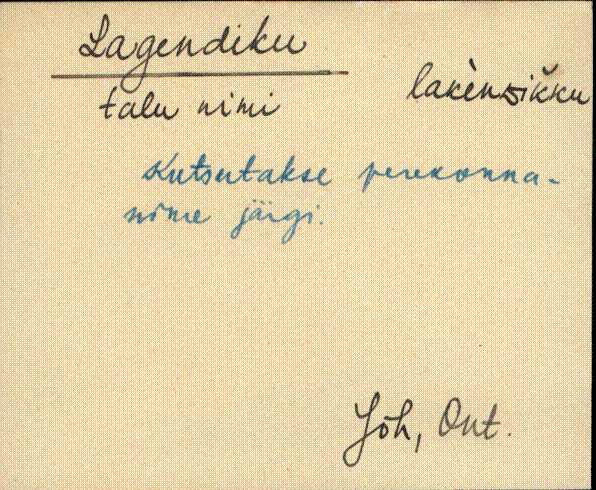 Lagendiku
talu nimi
Kutsutakse perekonna-
nime järgi.
Jõh, Ont.